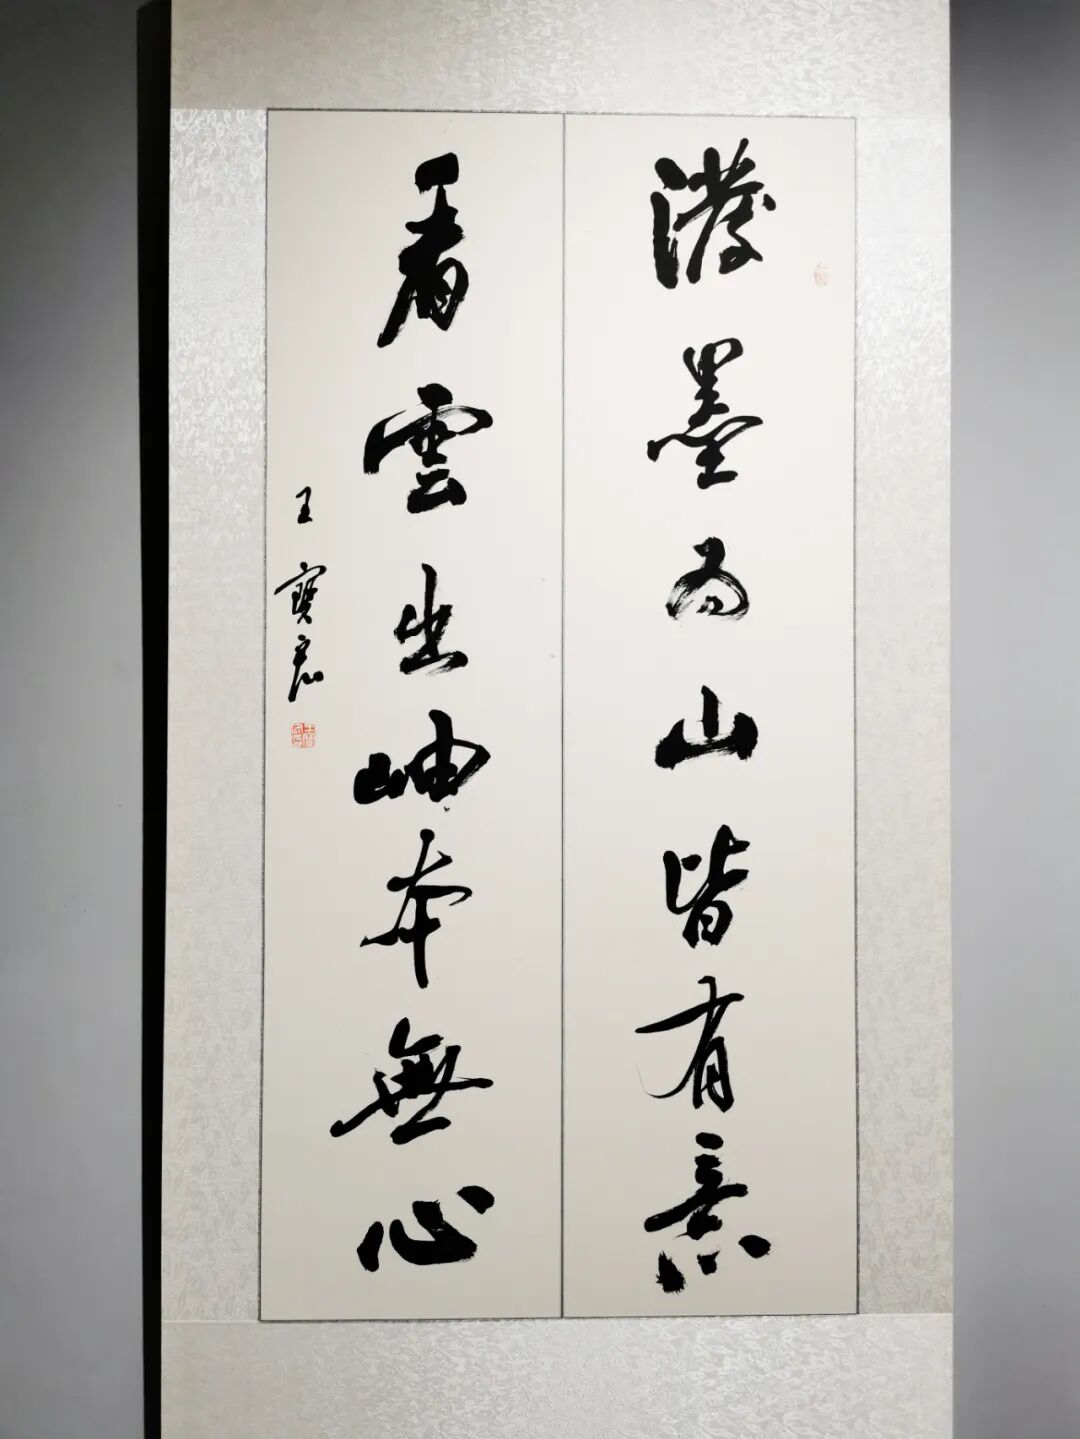 潑墨為山皆有意
看雲出岫本無心
王寶宸